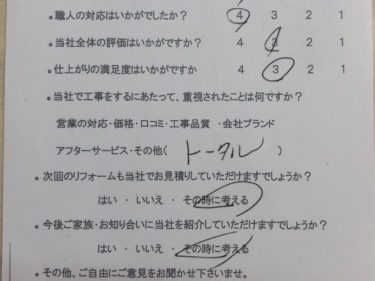 。職人の対応はいかがでしたか？ 4 3 2 1
。当社全体の評価はいかがですか？ 4 3 2 1
。仕上がりの満足度はいかがですか 4 3 2 1
。当社で工事をするにあたって、重視されたことは何ですか？
営業の対応・価格・口コミ・工事品質 ・会社ブランド
アフターサービス・その他( トータル )
。次回のリフォームも当社でお見積りしていただけますでしょうか？
はい ・ いいえ ・ その時に考える
。今後ご家族・お知り合いに当社を紹介していただけますでしょうか？
はい ・ いいえ ・ その時に考える
。その他、ご自由にご意見をお聞かせ下さいませ。